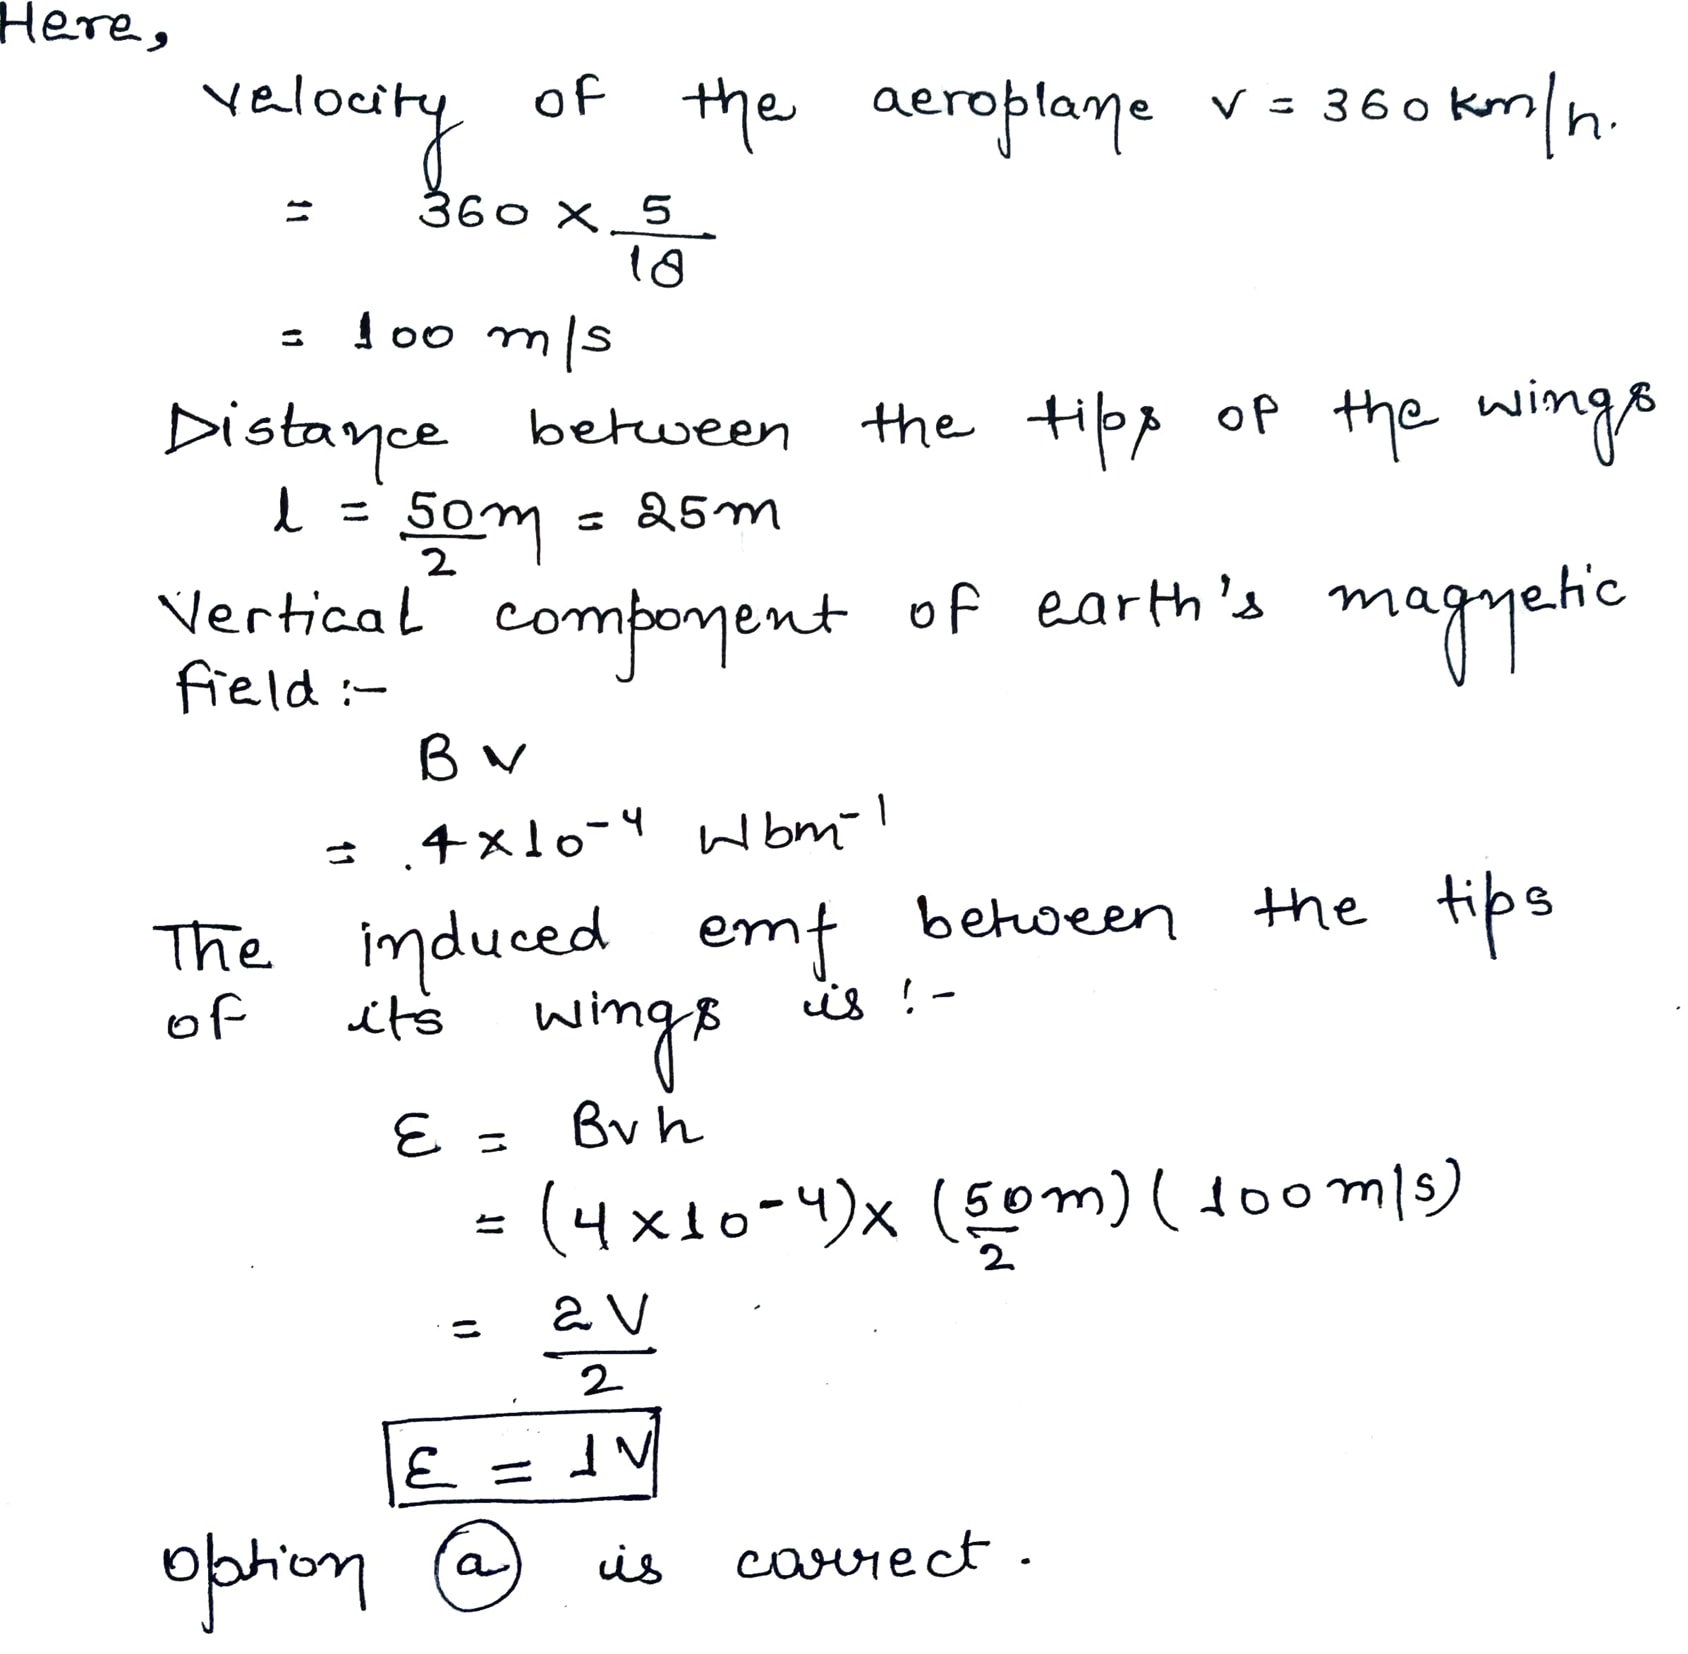 Here,
velocity of the aeroplane v = 360 km/h.
= 360 × 5/18
= 100 m/s
Distance between the tips of the wings
l = 50/2 m = 25m
Vertical component of earth's magnetic
field :-
B v
= .4×10⁻⁴ Wbm⁻¹
The induced emf between the tips
of its wings is :-
ε = Bvh
= (4×10⁻⁴)× (50/2 m) (100 m/s)
= 2V/2
ε = 1V
option (a) is correct.